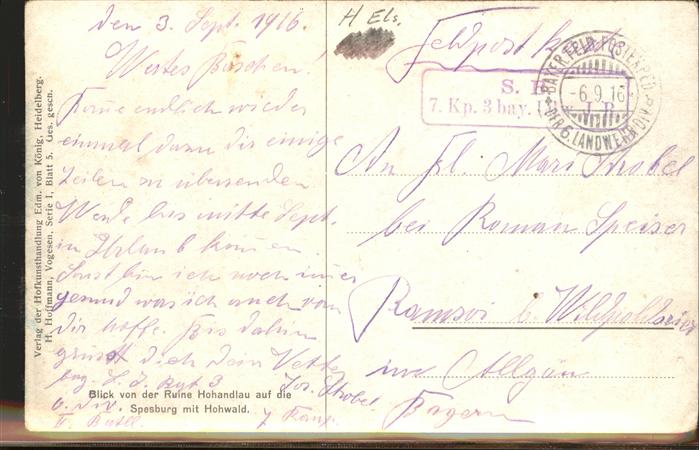 den 3. Sept. 1916.
Wertes Bäschen!
endlich wieder
einmal dazu dir einige
Zeilen zu übersenden
Werde bis mitte Sept.
in Urlaub kommen.
Sonst bin ich noch immer
gesund was ich auch von
dir hoffe. Bis dahin
grüsst dich dein Vetter
Jos. Strobel.
7 Komp.
Blick von der Ruine Hohandlau auf die
Spesburg mit Hohwald.
Verlag der Hofkunsthandlung Edm. von König, Heidelberg.
H. Hoffmann, Vogesen, Serie I, Blatt 5. Ges. gesch.
H Els.
Feldpostkarte
S. B.
7. Kp. 3 bay. L. J. R.
BAYER. FELD-POSTEXPED.
-6.9.16
DER 6. LANDWEHR DIV.
An Fl. Mari Strobel
bei Roman Speiser
Ramsoi b. Wildpoldsried
im Allgäu
Bayern